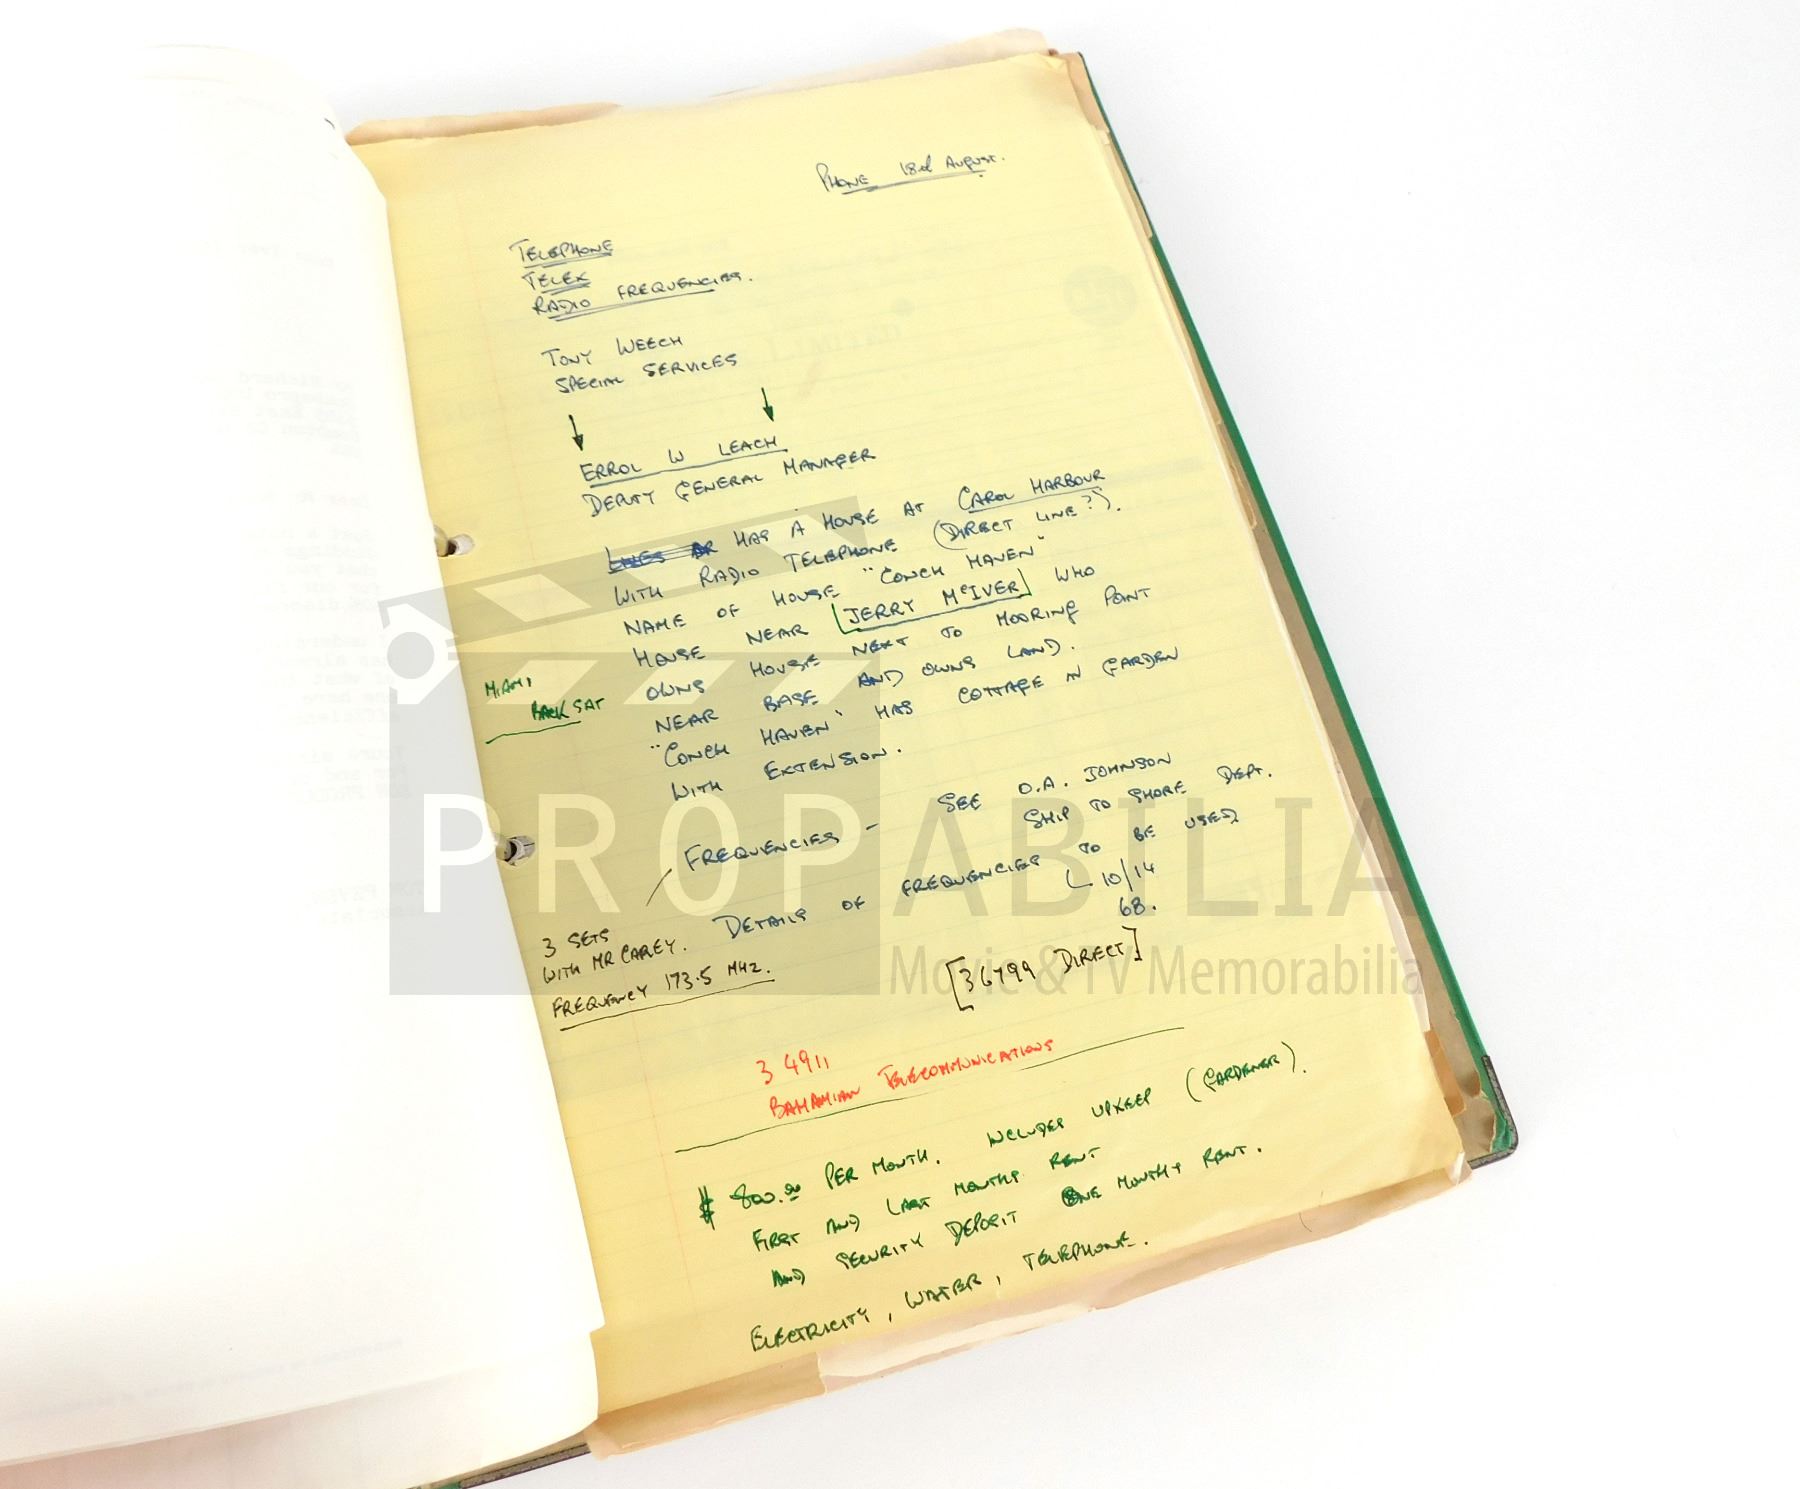 PHONE 18th AUGUST.
TELEPHONE
TELEX
RADIO FREQUENCIES.
TONY WEECH
SPECIAL SERVICES
ERROL W LEACH
DEPUTY GENERAL MANAGER
HAS A HOUSE AT CAROL HARBOUR
WITH RADIO TELEPHONE (DIRECT LINE?).
NAME OF HOUSE "CONCH HAVEN"
HOUSE NEAR [JERRY McIVER] WHO
OWNS HOUSE NEXT TO MOORING POINT
NEAR BASE AND OWNS LAND.
"CONCH HAVEN" HAS COTTAGE IN GARDEN
WITH EXTENSION.
MIAMI
BACK SAT
FREQUENCIES - SEE O.A. JOHNSON
SHIP TO SHORE DEPT.
DETAILS OF FREQUENCIES TO BE USED
10/14
68.
3 SETS
WITH MR CAREY.
FREQUENCY 173.5 MHZ.
[36799 DIRECT]
3 4911
BAHAMIAN TELECOMMUNICATIONS
$ 800.00 PER MONTH. INCLUDES UPKEEP (GARDENER).
FIRST AND LAST MONTHS RENT
AND SECURITY DEPOSIT ONE MONTHS RENT.
ELECTRICITY, WATER, TELEPHONE.
PROPABILIA
Movie & TV Memorabilia